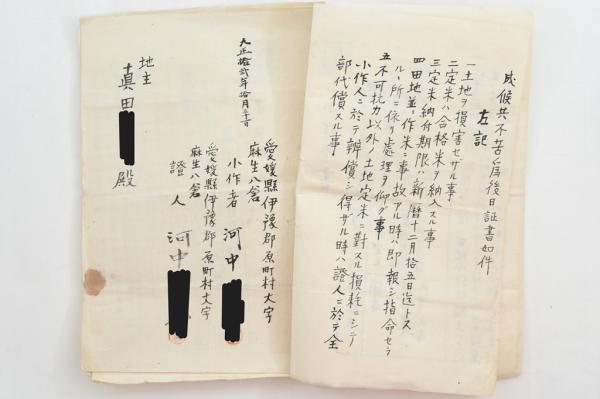 成候共不苦為後日証書如件
左記
一土地ヲ損害セザル事
二定米ハ合格米ヲ納入スル事
三定米納付期限ハ新暦十二月拾五日迄トス
四田地並ニ作米ニ事故アル時ハ即報シ指命セラ
ルヽ所ニ依リ處理ヲ仰グ事
五不可抗力以外ノ土地定米ニ對スル損耗ニシテ
小作人ニ於テ辨償シ得ザル時ハ證人ニ於テ全
部代償スル事
大正拾弐年拾月三十日
愛媛縣伊豫郡原町村大字
麻生八倉
小作者 河中
愛媛縣伊豫郡原町村大字
麻生八倉
證人 河中
地主
眞田 殿